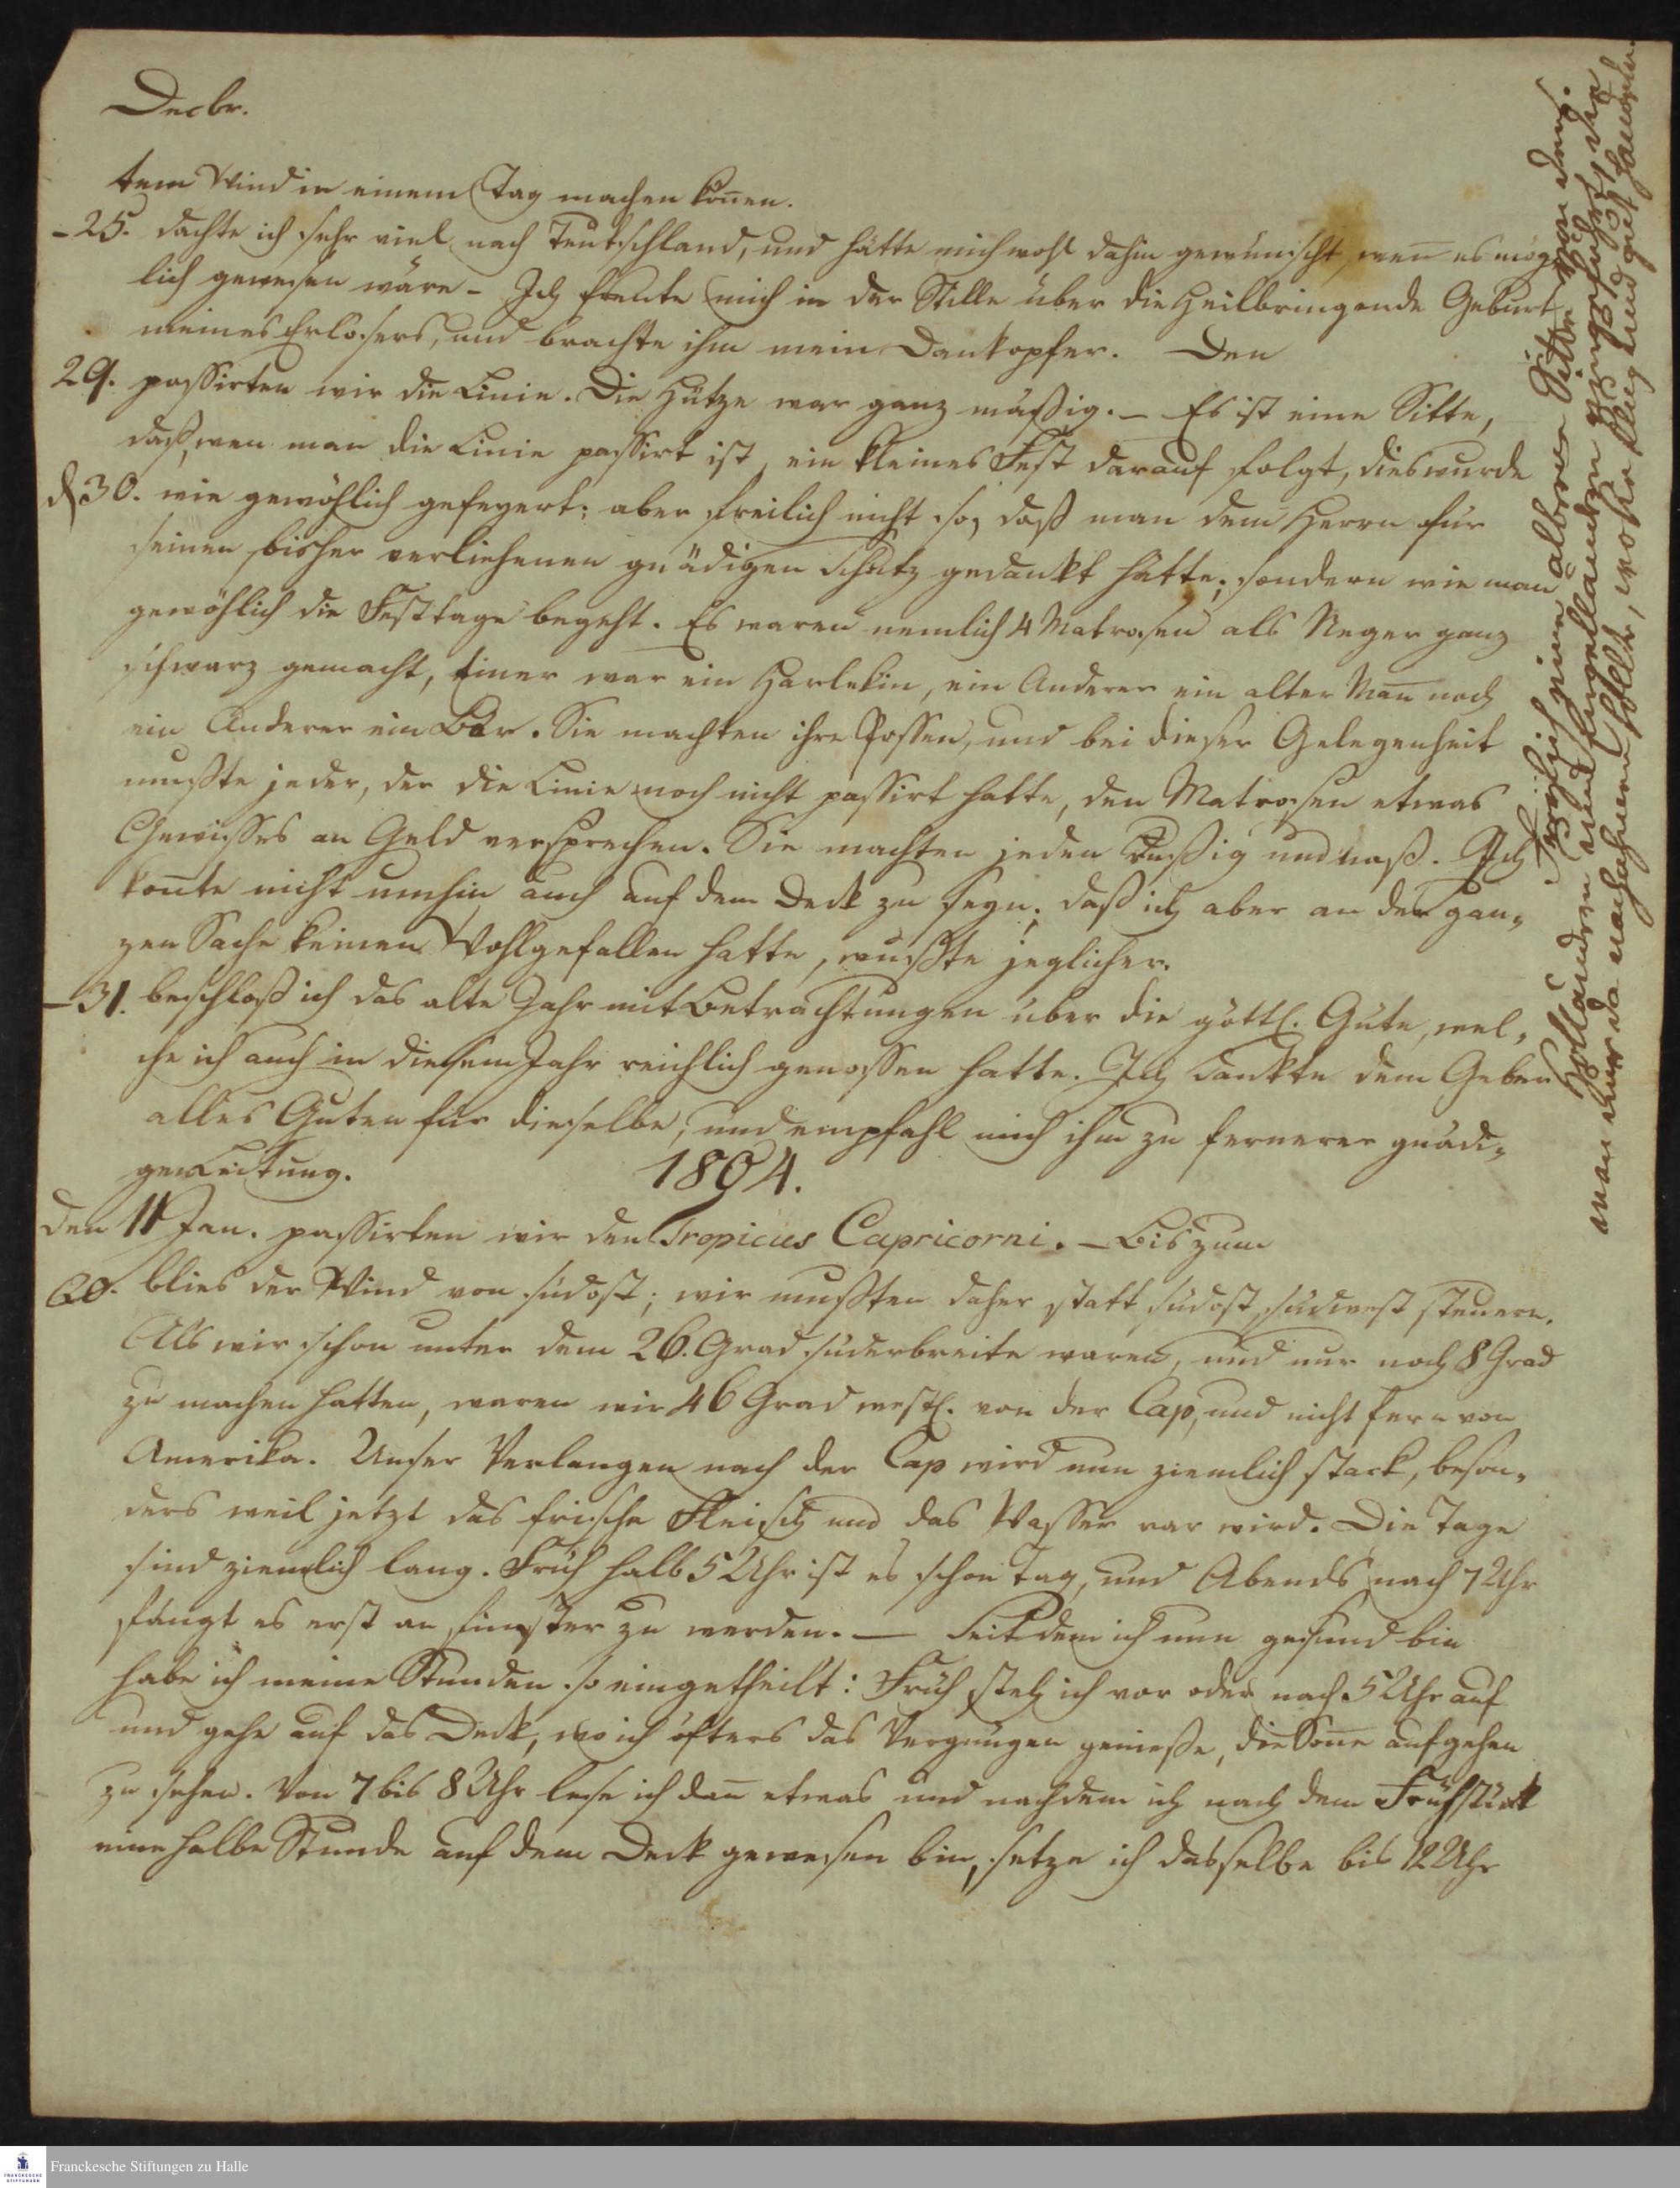 Decbr.
tem Wind in einem Tag machen köñen.
– 25. dachte ich sehr viel nach Teutschland, und hätte mich wohl dahin gewünscht, weñ es mög-
lich gewesen wäre – Ich freute mich in der Stille über die Heilbringende Geburt
meines Erlösers, und brachte ihm mein Dankopfer. Den
29. passirten wir die Linie. Die Hitze war ganz mäßig. – Es ist eine Sitte,
daß, wen man die Linie passirt ist, ein kleines Fest darauf folgt, dies wurde
d 30. wie gewöhlich gefeyert; aber freilich nicht so, daß man dem Herrn für
seinen bisher verliehenen gnädigen Schutz gedankt hätte; sondern wie man
gewöhlich die Festtage begeht. Es waren nemlich 4 Matrosen als Neger ganz
schwarz gemacht, Einer war ein Harlekin, ein Anderer ein alter Mañ noch
ein Anderer ein Bär. Sie machten ihre Possen, und bei dieser Gelegenheit
mußte jeder, der die Linie noch nicht passirt hatte, den Matrosen etwas
Gewisses an Geld versprechen. Sie machten jeden rußig und naß. Ich
koñte nicht umhin auch auf dem Deck zu seyn; daß ich aber an der gan-
zen Sache keinen Wohlgefallen hatte, wußte jeglicher.
– 31. beschloß ich das alte Jahr mit Betrachtungen über die göttl. Güte, wel-
che ich auch in diesem Jahr reichlich genossen hatte. Ich dankte dem Geber
alles Guten für dieselbe, und empfahl mich ihm zu fernerer gnädi-
ger Leitung. 1804.
den 11 Jan. passirten wir den Tropicus Capricorni. – Bis zum
20. blies der Wind von südost; wir mußten daher statt südost, südwest steuern.
Als wir schon unter dem 26. Grad süderbreite waren, und nur noch 8 Grad
zu machen hatten, waren wir 46 Grad westl. von der Cap, und nicht fern von
Amerika. Unser Verlangen nach der Cap wird nun ziemlich stark, beson-
ders weil jetzt das frische Fleisch und das Wasser rar wird. Die Tage
sind ziemlich lang. Früh halb 5 Uhr ist es schon Tag, und Abends nach 7 Uhr
fängt es erst an finster zu werden. — Seitdem ich nun gesund bin
habe ich meine Stunden so eingetheilt: Früh steh ich vor oder nach 5 Uhr auf
und gehe auf das Deck, wo ich öfters das Vergnügen genieße, die Soñe aufgehen
zu sehen. Von 7 bis 8 Uhr lese ich dañ etwas und nachdem ich nach dem Frühstück
eine halbe Stunde auf dem Deck gewesen bin, setze ich dasselbe bis 12 Uhr
freilich eine alberne Sitte von den
Holländern und Engelländern eingeführt, die
man nur da nachahmen sollte, wo sie klug und gut handeln.
Franckesche Stiftungen zu Halle